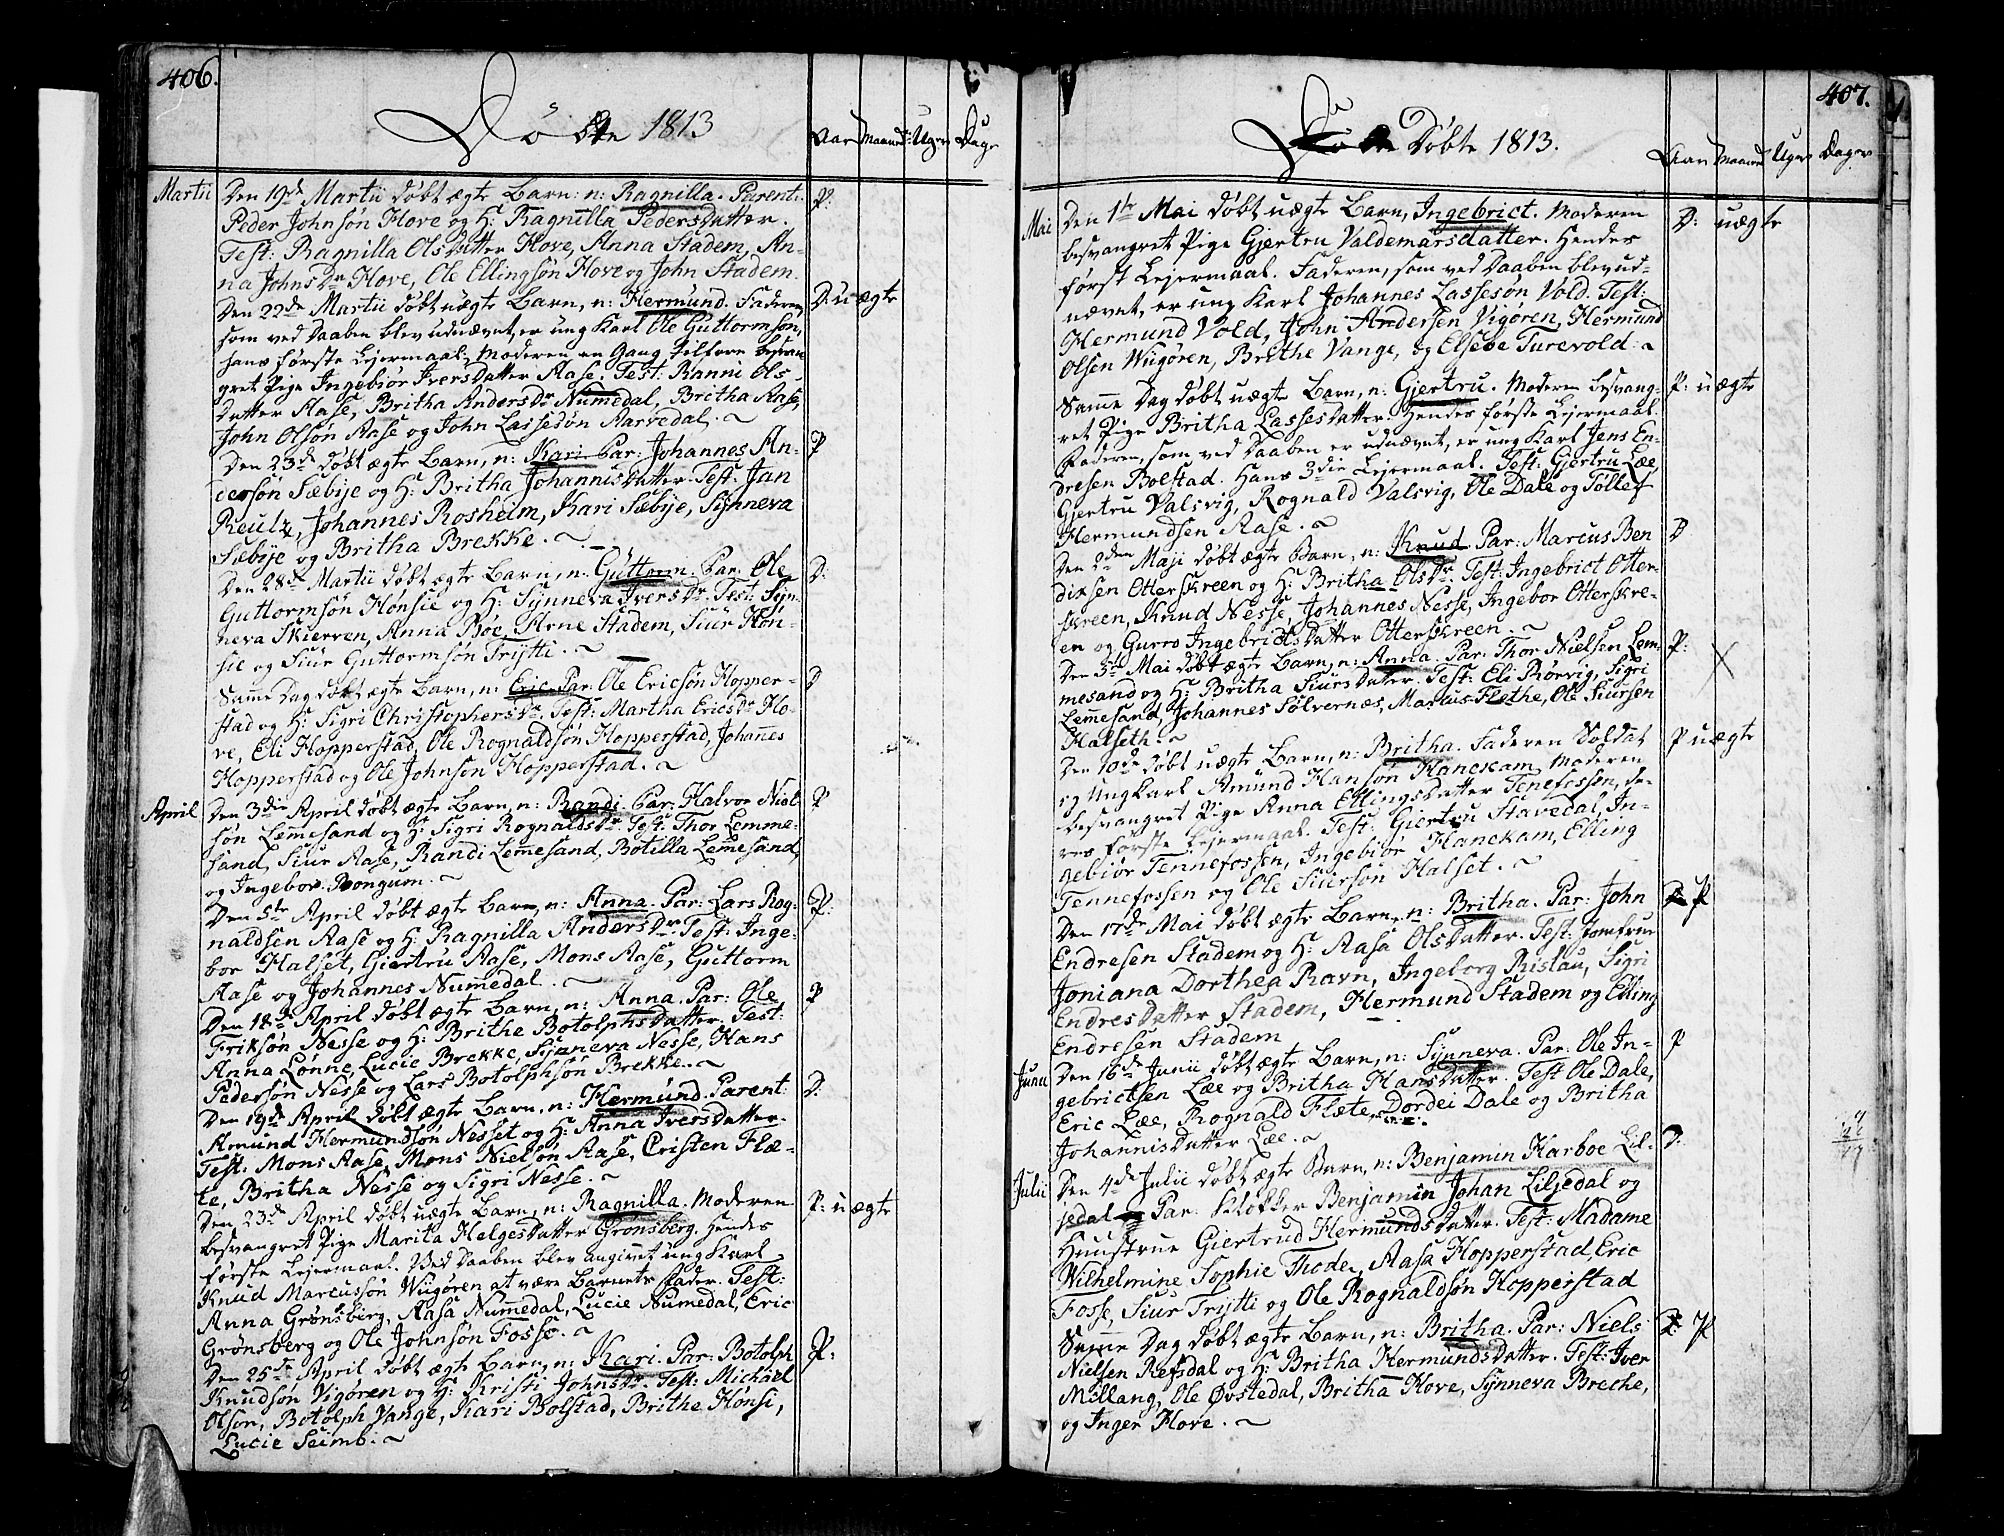 406.
Døbte 1813
Aar Maaned: Uger Dage
Martii
Den 19de Martii døbt ægte Barn: n: Ragnilla. Parent:
P:
Peder Johnsøn Hove og H: Ragnilla Pedersdatter.
Test: Ragnilla Olsdatter Hove, Anna Stadem, An-
na Johnsdr Hove, Ole Ellingsøn Hove og John Stadem.
Den 22de Martii døbt uægte Barn, n: Hermund. Faderen
D: uægte
som ved Daaben blev udnævnt, er ung Karl Ole Guttormson,
hans første Lejermaal. Moderen en Gang tilforn besvan
gret Pige Ingebiør Iversdatter Aase. Test: Ranni Ols-
datter Aase, Britha Andersdr Numedal, Britha Aase,
John Olsøn Aase og John Lassesøn Aarvedal. ~
Den 23de døbt ægte Barn, n: Kari Par: Johannes An-
P
dersøn Sæbye og H: Britha Johannisdatter. Test: Jan
Reutz, Johannes Rosheim, Kari Sæbye, Synneva
Sæbye og Britha Brekke. ~
Den 28de Martii døbt ægte Barn, n: Guttorm. Par: Ole
D:
Guttormsøn Hønsie og H: Synneva Iversdr. Test: Syn-
neva Skierven, Anna Bøe, Arne Stadem, Siur Høn-
sie og Siur Guttormsøn Trytti. ~
Samme Dag døbt ægte Barn, n: Eric. Par: Ole Ericsøn Hopper-
D
stad og H: Sigri Christophersdr. Test: Martha Ericsdr Ho-
ve, Eli Hopperstad, Ole Rognaldsøn Hopperstad, Johannes
Hopperstad og Ole Johnsøn Hopperstad. ~
April
Den 3die April døbt ægte Barn, n: Randi. Par: Halvor Niel-
P
søn Lemmesand og H: Sigri Rognaldsdr. Test: Thor Lemme-
sand, Siur Aase, Randi Lemmesand, Botilla Lemmesand,
og Ingebor Rongum. ~
Den 5te April døbt ægte Barn, n: Anna. Par: Lars Rog-
P:
naldsen Aase og H: Ragnilla Andersdr. Test: Inge-
bor Halset, Giertru Aase, Mons Aase, Guttorm
Aase og Johannes Numedal. ~
Den 18de April døbt ægte Barn, n: Anna. Par: Ole
P
Friksøn Nesse og H: Brithe Botolphsdatter. Test:
Anna Lønne, Lucie Brekke, Synneva Nesse, Hans
Pedersøn Nesse og Lars Botolphsøn Brekke. ~
Den 19de April døbt ægte Barn, n: Hermund. Parent:
D:
Amund Hermundsøn Nesset og H: Anna Iversdatter.
Test: Mons Aase, Mons Nielsøn Aase, Cristen Flæ-
te, Britha Nesse og Sigri Nesse. ~
Den 23de April døbt uægte Barn, n: Ragnilla. Moderen
P: uægte
besvangret Pige Marita Helgesdatter Grønsberg. Hendes
første Lejermaal. Ved Daaben blev angivet ung Karl
Knud Marcussøn Wigøren at være Barnets Fader. Test:
Anna Grønsberg, Aasa Numedal, Lucie Numedal, Eric
Grønsberg og Ole Johnsøn Fosse. ~
Den 25de April døbt ægte Barn, n: Kari. Par: Botolph
P:
Knudsøn Vigøren og H: Kristi Johnsdr. Test: Michael
Olsøn, Botolph Vange, Kari Bolstad, Brithe Hønsi,
Lucie Seimb. ~
407.
Døbte 1813.
Aar Maaned Uger Dager
Mai
Den 1te Mai døbt uægte Barn, Ingebrict. Moderen
D: uægte
besvangret Pige Gjertru Valdemarsdatter. Hendes
først Lejermaal. Faderen, som ved Daaben blev ud-
nævnt, er ung Karl Johannes Lassesøn Vold. Test:
Hermund Vold, John Andersen Vigøren, Hermund
Olsen Wiigøren, Brithe Vange, og Elsebe Turevold. ~
Samme Dag døbt uægte Barn, n: Gjertru. Moderen besvang-
P: uægte
ret Pige Britha Lassesdatter. Hendes første Lejermaal.
Faderen, som ved Daaben er udnævnt, er ung Karl Jens En-
dresen Bolstad. Hans 3die Lejermaal. Test: Gjertru Læe,
Gjertru Valsvig, Rognald Valsvig, Ole Dale og Tollef
Hermundsen Aase. ~
Den 2den Maji døbt ægte Barn, n: Knud. Par: Marcus Ben
D
dixsen Otterskreen og H: Britha Olsdr. Test: Ingebrict Otter-
skreen, Knud Nesse, Johannes Nesse, Ingebor Otterskre-
en og Gurro Ingebrictsdatter Otterskreen. ~
Den 5te Mai døbt ægte Barn, n: Anna. Par: Thor Nielsen Lem-
P:
mesand og H: Britha Siursdatter. Test: Eli Rørvig, Sigri
Lemmesand, Johannes Sølvernæs, Marius Flethe, Ole Siursen
Halseth. ~
Den 10de døbt uægte Barn, n: Britha. Faderen Soldat
P uægte
og Ungkarl Amund Hansøn Hanekam, Moderen
besvangret Pige Anna Ellingsdatter Tenefossen, de-
res første Lejermaal. Test: Giertru Stavedal, In-
gebiør Tennefossen, Ingebiør Hanekam, Elling
Tennefossen og Ole Siursøn Halset. ~
Den 17de Mai døbt ægte Barn, n: Britha. Par: John
P
Endresen Stadem og H: Aasa Olsdatter. Test: Jomfrue
Joniana Dorthea Ravn, Ingeborg Rislau, Sigri
Endresdatter Stadem, Hermund Stadem og Elling
Endresen Stadem
Junii
Den 16de Junii døbt ægte Barn, n: Synneva. Par: Ole In-
P
gebrictsen Læe og Britha Hansdatter. Test Ole Dale,
Eric Læe, Rognald Flæte, Dordei Dale og Britha
Johannisdatter Læe. ~
Julii
Den 4de Julii døbt ægte Barn, n: Benjamin Harboe Lil-
D:
jedal Par: Klokker Benjamin Johan Liljedal og
Huustrue Giertrud Hermundsdatter. Test: Madame
Wilhelmine Sophie Thode, Aasa Hopperstad, Eric
Fosse, Siur Trytti og Ole Rognaldsøn Hopperstad
Samme Dag døbt ægte Barn, n: Britha. Par: Niels
P
Nielsen Refsdal og H: Britha Hermundsdatter. Test: Iver
Millang, Ole Øvstedal, Britha Hove, Synneva Breche,
og Inger Hove. ~